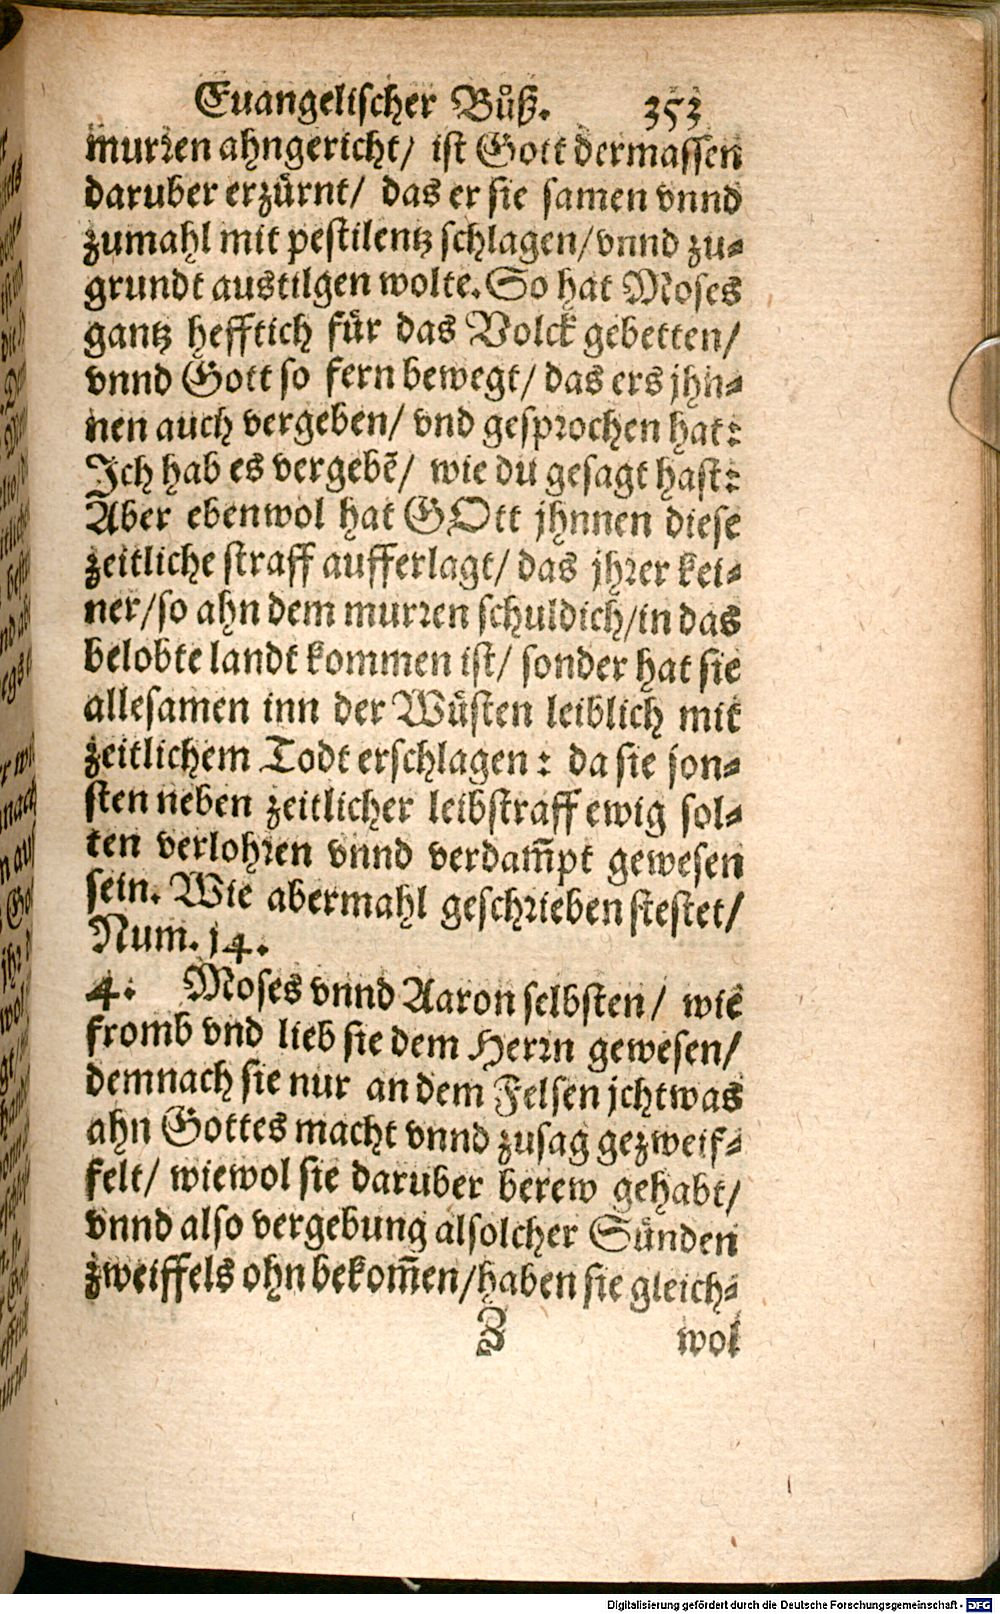 Euangelischer Bůß. 353
murren ahngericht/ ist Gott dermassen
daruber erzürnt/ das er sie samen vnnd
zumahl mit pestilentz schlagen/vnnd zu-
grundt austilgen wolte. So hat Moses
gantz hefftich für das Volck gebetten/
vnnd Gott so fern bewegt/ das ers jhn-
nen auch vergeben/ vnd gesprochen hat:
Ich hab es vergebẽ/ wie du gesagt hast:
Aber ebenwol hat GOtt jhnnen diese
zeitliche straff aufferlagt/ das jhrer kei-
ner/so ahn dem murren schuldich/in das
belobte landt kommen ist/ sonder hat sie
allesamen inn der Wüsten leiblich mit
zeitlichem Todt erschlagen: da sie son-
sten neben zeitlicher leibstraff ewig sol-
ten verlohren vnnd verdam̃pt gewesen
sein. Wie abermahl geschrieben stestet/
Num. 14.
4. Moses vnnd Aaron selbsten/ wie
fromb vnd lieb sie dem Herrn gewesen/
demnach sie nur an dem Felsen jchtwas
ahn Gottes macht vnnd zusag gezweif-
felt/ wiewol sie daruber berew gehabt/
vnnd also vergebung alsolcher Sünden
zweiffels ohn bekom̃en/haben sie gleich-
Z wol
Digitalisierung gefördert durch die Deutsche Forschungsgemeinschaft - DFG